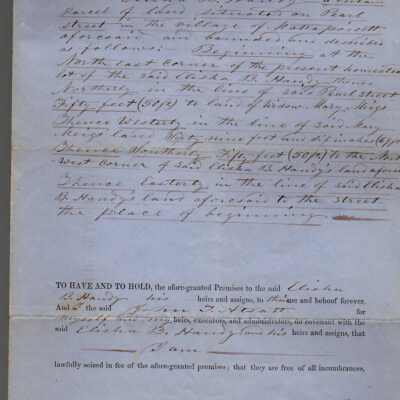 Elisha B. Handy a certain
parcel of land situated on Pearl
Street in the village of Mattapoisett
aforesaid and bounded and described
as follows: Beginning at the
North east corner of the present homestead
lot of the said Elisha B. Handy thence
Northerly in the line of said Pearl street
Fifty feet (50ft) to land of widow Mary Meigs
Thence Westerly in the line of said Mary
Meigs land Sixty nine feet and six inches
Thence Southerly Fifty feet (50ft) to the North
west corner of said Elisha B. Handy's land aforesaid
Thence Easterly in the line of said Elisha
B. Handy's land aforesaid to the Street
the place of beginning
TO HAVE AND TO HOLD, the afore-granted Premises to the said Elisha
B. Handy his heirs and assigns, to his use and behoof forever.
And I the said John T. Atsatt for
myself and my heirs, executors, and administrators, do covenant with the
said Elisha B. Handy and his heirs and assigns, that
I am
lawfully seized in fee of the afore-granted premises; that they are free of all incumbrances,